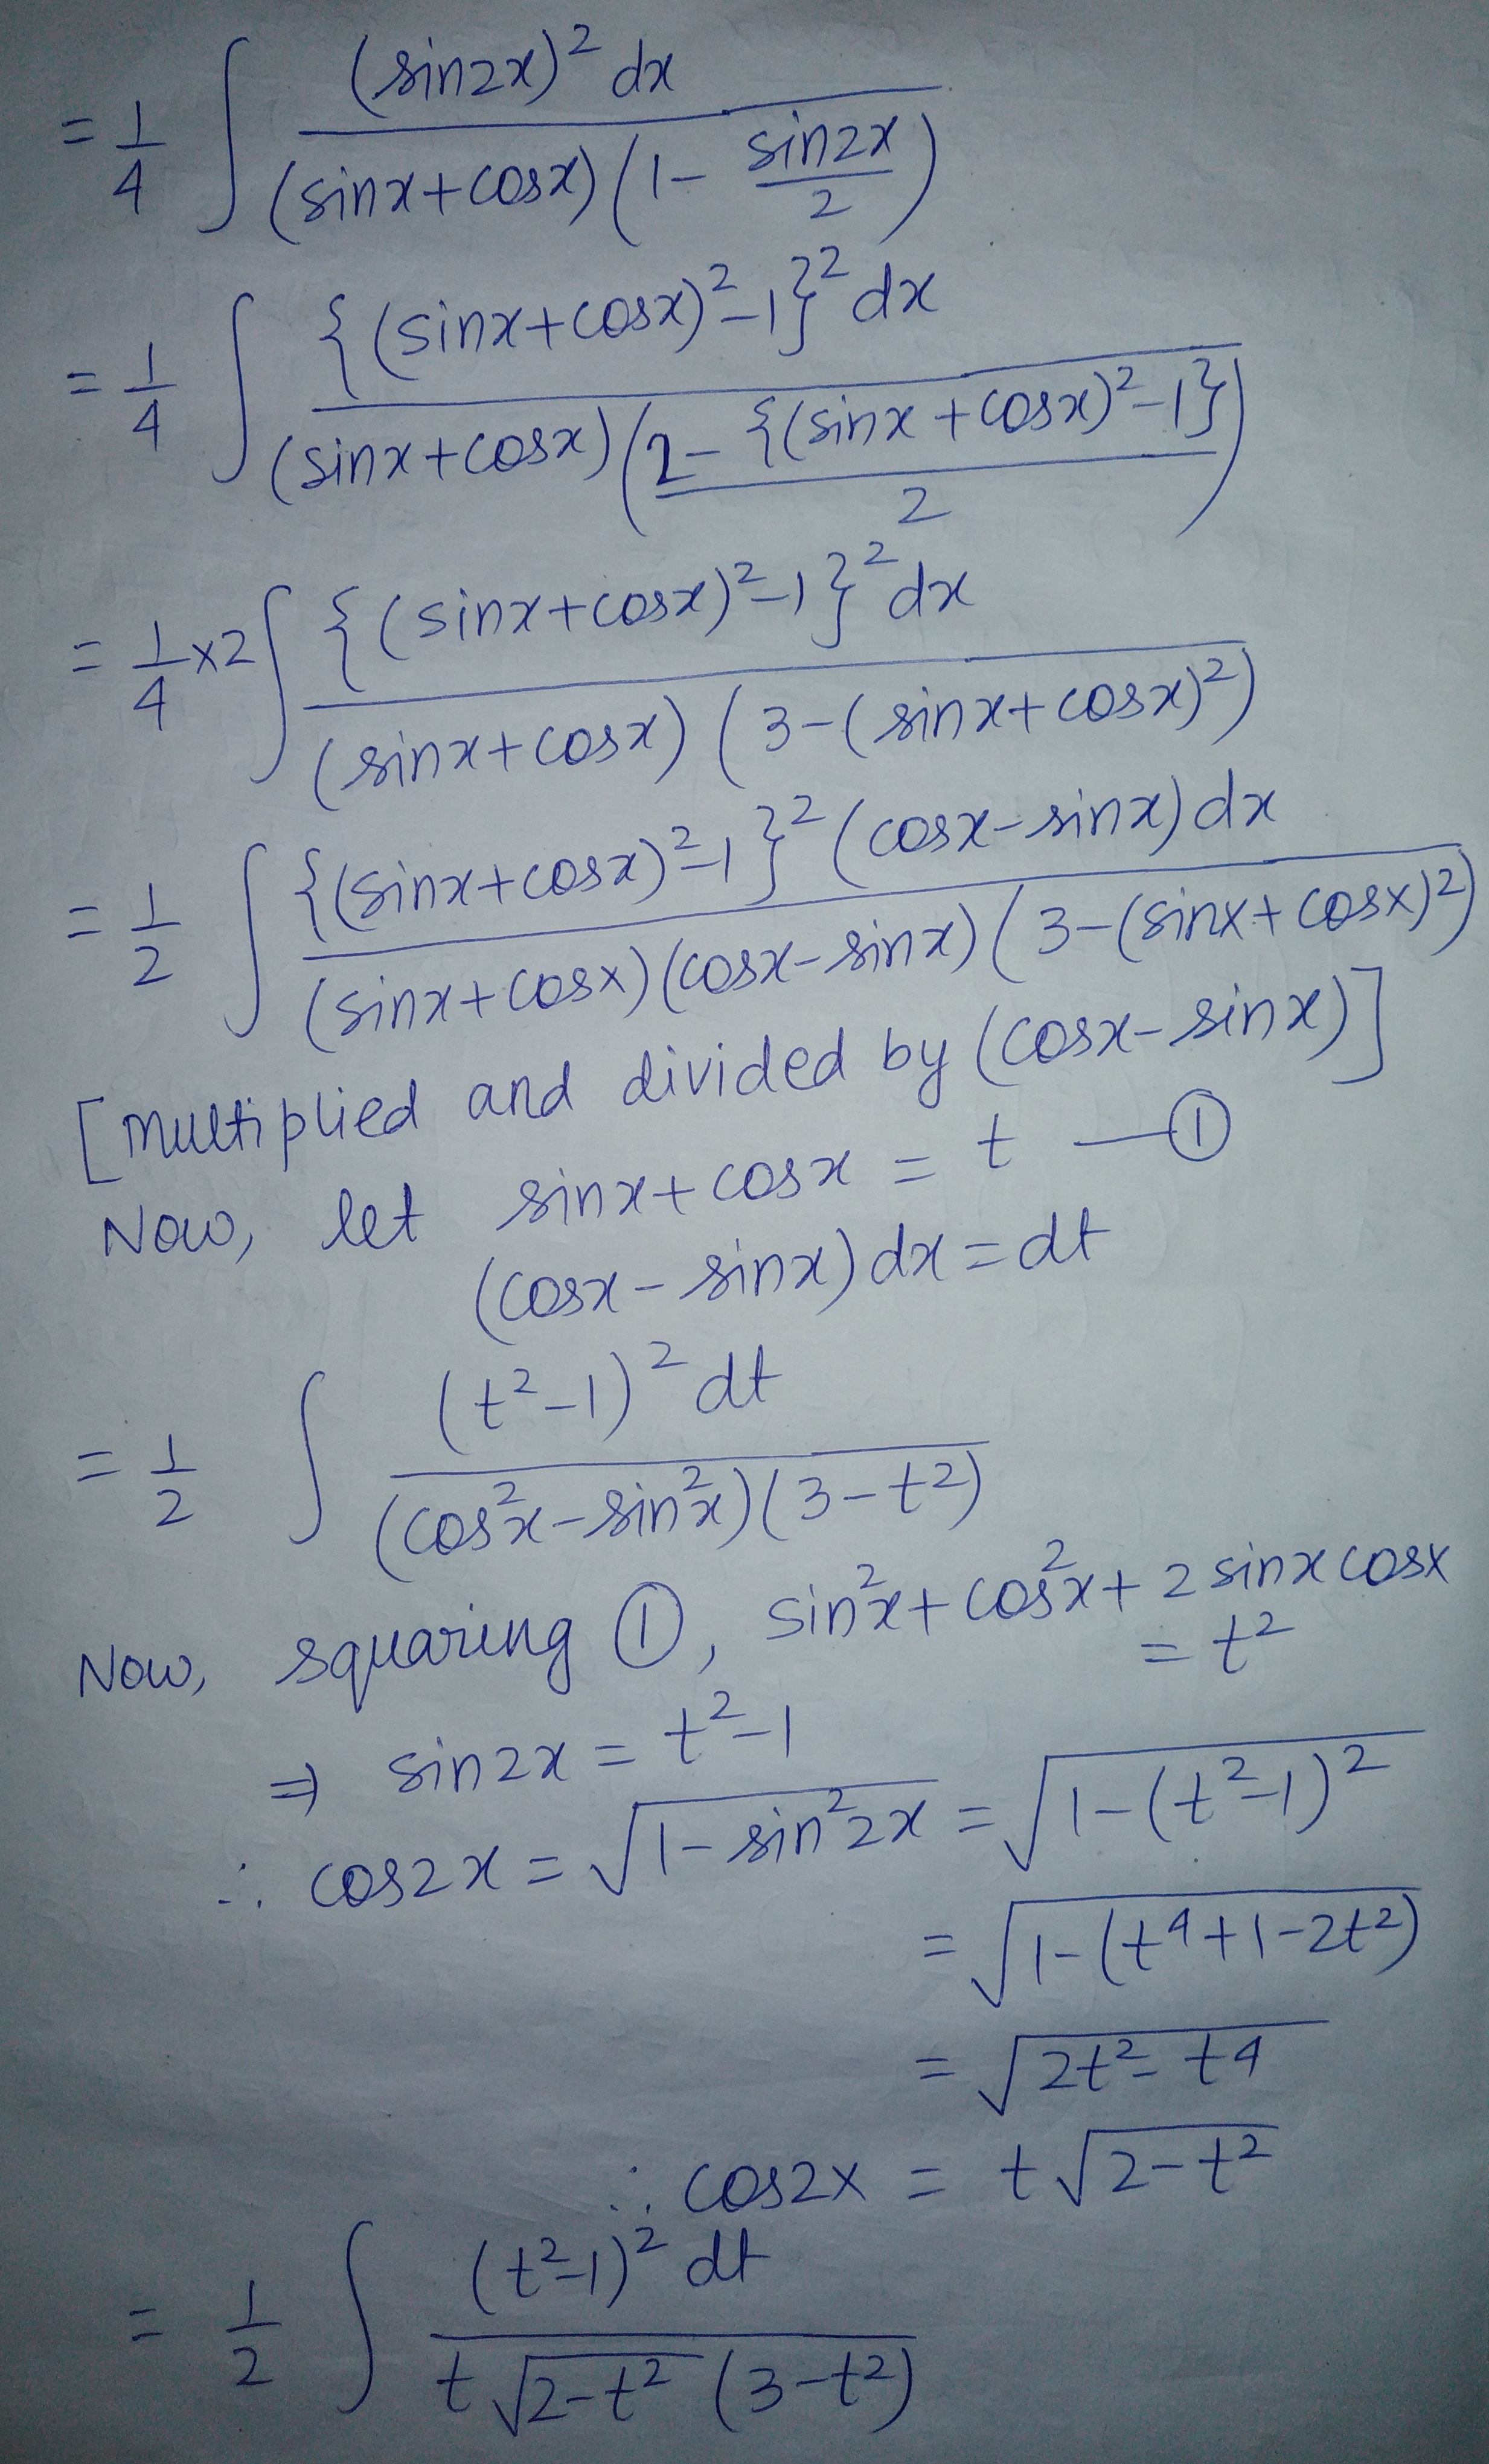 = 1/4 ∫ (sin2x)² dx / (sinx+cosx)(1 - sin2x/2)
= 1/4 ∫ {(sinx+cosx)²-1}² dx / (sinx+cosx)(2-{(sinx+cosx)²-1}/2)
= 1/4 ×2 ∫ {(sinx+cosx)²-1}² dx / (sinx+cosx)(3-(sinx+cosx)²)
= 1/2 ∫ {(sinx+cosx)²-1}² (cosx-sinx)dx / (sinx+cosx)(cosx-sinx)(3-(sinx+cosx)²)
[multiplied and divided by (cosx-sinx)]
Now, let sinx+cosx = t —①
(cosx-sinx)dx=dt
= 1/2 ∫ (t²-1)² dt / (cos²x-sin²x)(3-t²)
Now, squaring ①, sin²x+cos²x+2sinxcosx
= t²
⇒ sin2x = t²-1
∴ cos2x = √(1-sin²2x) = √(1-(t²-1)²)
= √(1-(t⁴+1-2t²))
= √(2t²-t⁴)
∴ cos2x = t√(2-t²)
= 1/2 ∫ (t²-1)² dt / t√(2-t²) (3-t²)